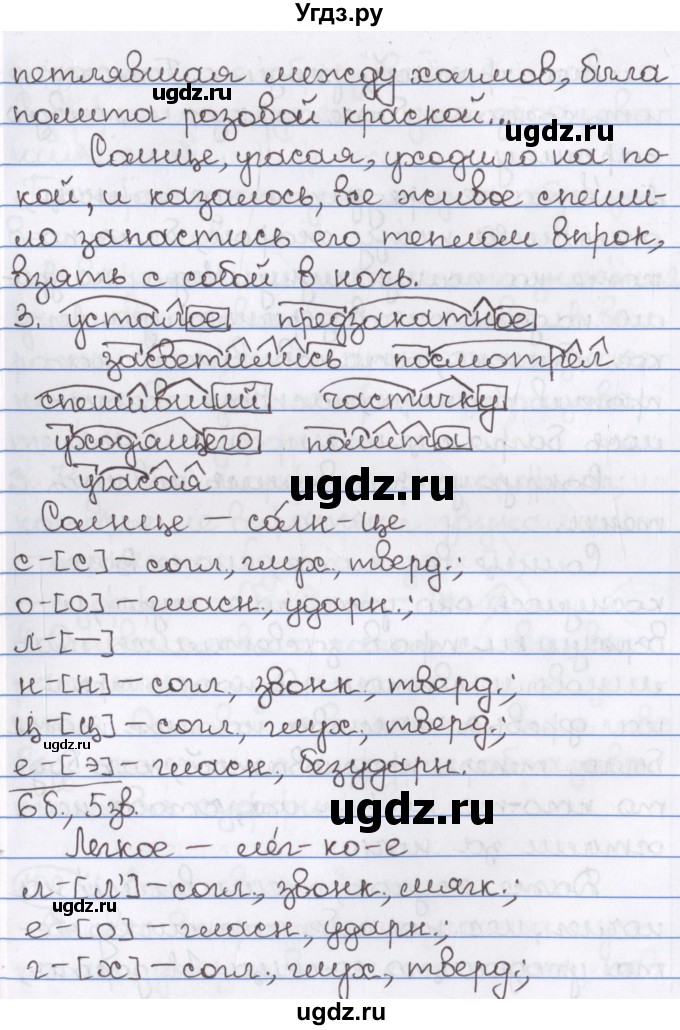 Угдз.ру
петлявшая между холмов, была
ugdz.ru
полита розовой краской...
ugdz.ru
Солнце, угасая, уходило на по-
кой, и казалось, все живое спеши-
ло запастись его теплом впрок,
взять с собой в ночь.
3. усталое предзакатное
засветились посмотрел
спешивший частичку
уходящего полита
угасая
ugdz.ru
Солнце – со́лн-це
с-[с] – согл., глух., тверд.;
о-[о] – гласн., ударн.;
л-[–]
н-[н] – согл., звонк., тверд.;
ц-[ц] – согл., глух., тверд.;
ugdz.ru
е-[э] – гласн., безударн.
6б., 5зв.
ugdz.ru
Легкое – лёг-ко-е
л-[л'] – согл., звонк., мягк.;
ugdz.ru
е-[о] – гласн., ударн.;
г-[х] – согл., глух., тверд.;
ugdz.ru